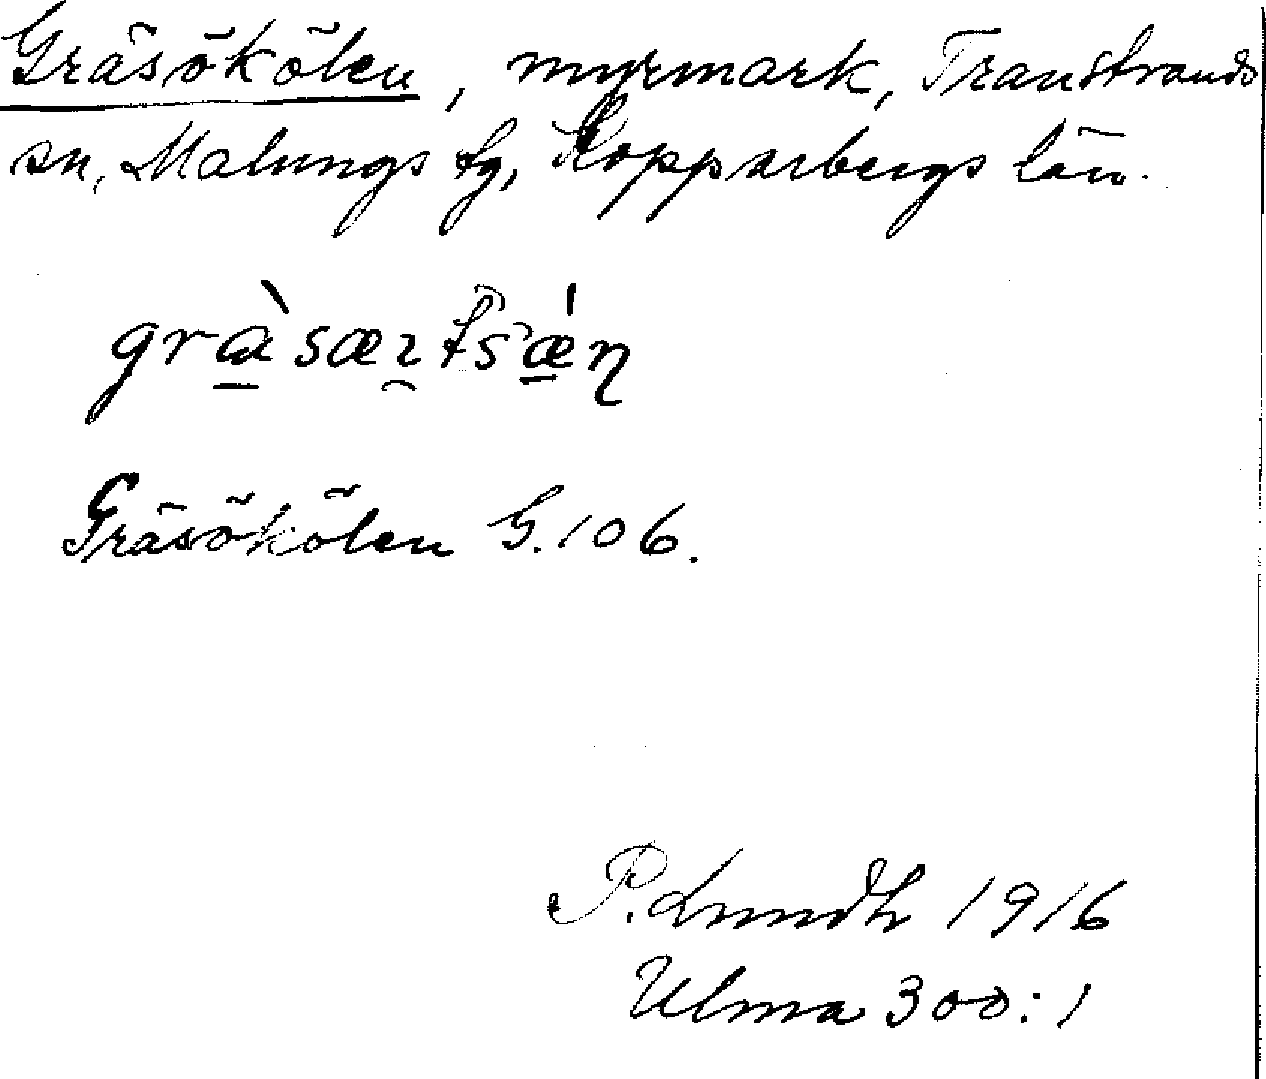 Gräsökölen, myrmark, Transtrands
sn, Malungs tg, Kopparbergs län.
Gräsökölen G. 106.
P. Lundh 1916
Ulma 300:1